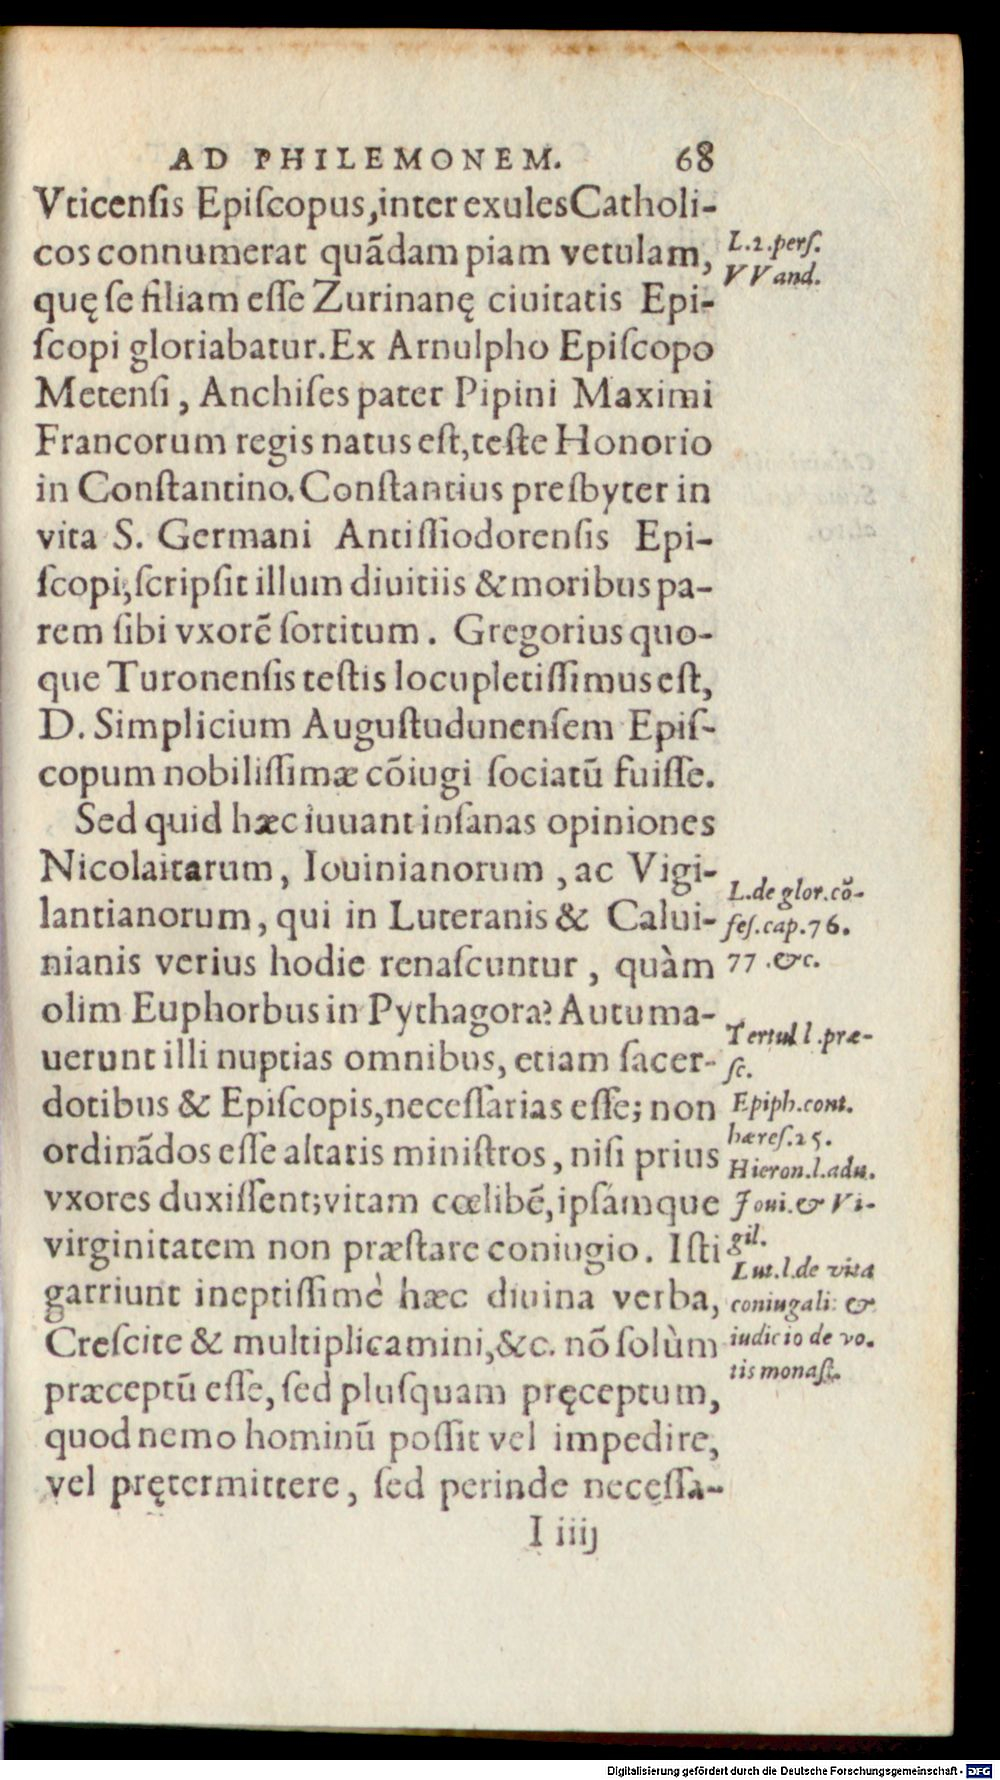 AD PHILEMONEM. 68
Vticenſis Epiſcopus, inter exules Catholi-
cos connumerat quãdam piam vetulam,
quę ſe filiam eſſe Zurinanę ciuitatis Epi-
ſcopi gloriabatur. Ex Arnulpho Epiſcopo
Metenſi, Anchiſes pater Pipini Maximi
Francorum regis natus eſt, teſte Honorio
in Conſtantino. Conſtantius presbyter in
vita S. Germani Antiſſiodorenſis Epi-
ſcopi, ſcripſit illum diuitiis & moribus pa-
rem ſibi vxorẽ ſortitum. Gregorius quo-
que Turonenſis teſtis locupletiſſimus eſt,
D. Simplicium Auguſtudunenſem Epiſ-
copum nobiliſſimæ cõiugi ſociatũ fuiſſe.
Sed quid hæc iuuant inſanas opiniones
Nicolaitarum, Iouinianorum, ac Vigi-
lantianorum, qui in Luteranis & Calui-
nianis verius hodie renaſcuntur, quàm
olim Euphorbus in Pythagora? Autuma-
uerunt illi nuptias omnibus, etiam ſacer-
dotibus & Epiſcopis, neceſſarias eſſe; non
ordinãdos eſſe altaris miniſtros, niſi prius
vxores duxiſſent; vitam cœlibẽ, ipſámque
virginitatem non præſtare coniugio. Iſti
garriunt ineptiſſimè hæc diuina verba,
Creſcite & multiplicamini, &c. nõ ſolùm
præceptũ eſſe, ſed pluſquam pręceptum,
quod nemo hominũ poſſit vel impedire,
vel prętermittere, ſed perinde neceſſa-
I iiij
L. 2. perſ.
VVand.
L. de glor. cõ-
feſ. cap. 76.
77. &c.
Tertul l. præ-
ſc.
Epiph. cont.
hæreſ. 25.
Hieron. l. adu.
Ioui. & Vi-
gil.
Lut. l. de vita
coniugali: &
iudicio de vo.
tis monaſt.
Digitalisierung gefördert durch die Deutsche Forschungsgemeinschaft - DFG